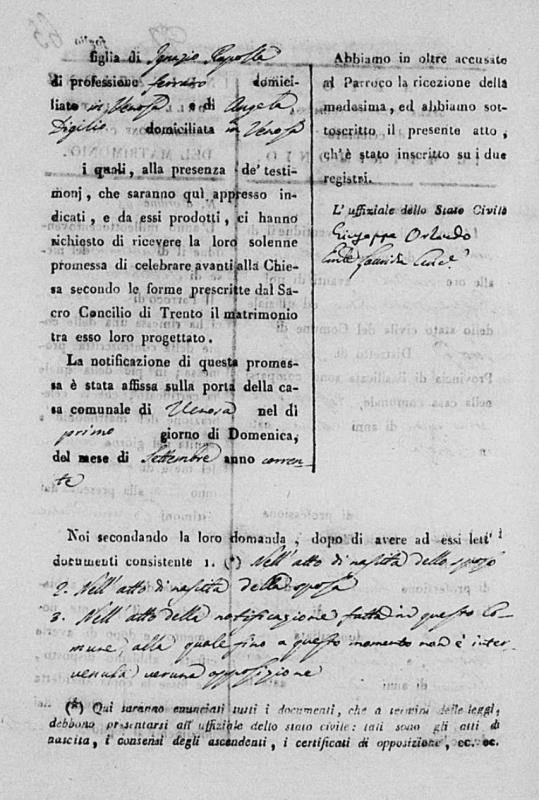 figlia di Ignazio Raposta
di professione ferraro domici-
liato in Venosa e di Angela
Digilio domiciliata in Venosa
i quali, alla presenza de' testi-
monj, che saranno quì appresso in-
dicati, e da essi prodotti, ci hanno
richiesto di ricevere la loro solenne
promessa di celebrare avanti alla Chie-
sa secondo le forme prescritte dal Sa-
cro Concilio di Trento il matrimonio
tra esso loro progettato.
La notificazione di questa promes-
sa è stata affissa sulla porta della ca-
sa comunale di Venosa nel dì
primo giorno di Domenica,
del mese di Settembre anno corren-
te
Abbiamo in oltre accusato
al Parroco la ricezione della
medesima, ed abbiamo sot-
toscritto il presente atto,
ch'è stato inscritto su i due
registri.
L' uffiziale dello Stato Civile
Giuseppe Orlando
Noi secondando la loro domanda, dopo di avere ad essi lett' i
documenti consistente 1. (*) Nell' atto di nascita dello sposo
2. Nell' atto di nascita della sposa
3. Nell' atto della notificazione fatta in questo Co-
mune, alla quale fino a questo momento non è inter-
venuta veruna opposizione
(*) Qui saranno enunciati tutti i documenti, che a termini delle leggi,
debbono presentarsi all' uffiziale dello stato civile: tali sono gli atti di
nascita, i consensi degli ascendenti, i certificati di opposizione, ec. ec.